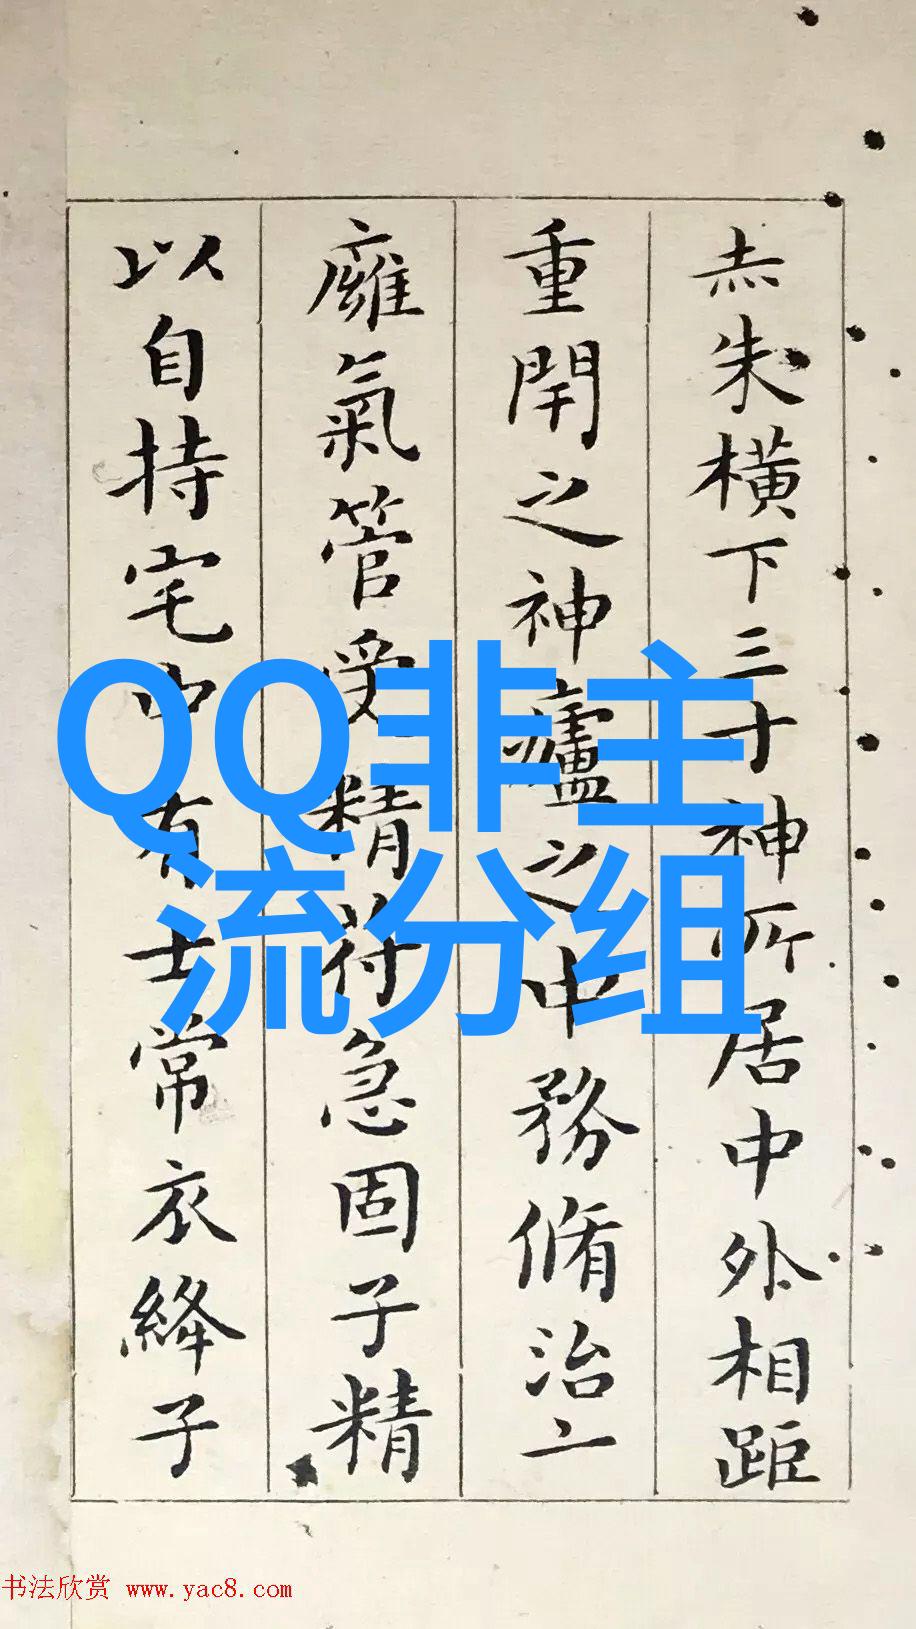 赤朱橫下三寸神所居中外相距
重閈之神廬之中務脩治亠
癰氣管受精符急固子精
以自持宅中有士常衣絳子
QQ非主
流分组
书法欣赏 www.yac8.com